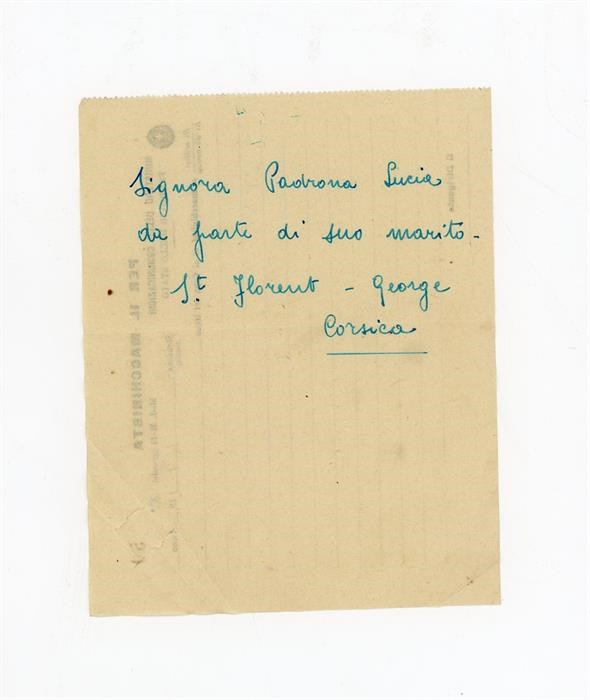 Signora Padrona Lucia
da parte di suo marito -
St Florent - George
Corsica
PER IL MACCHINISTA
Il Dirigente